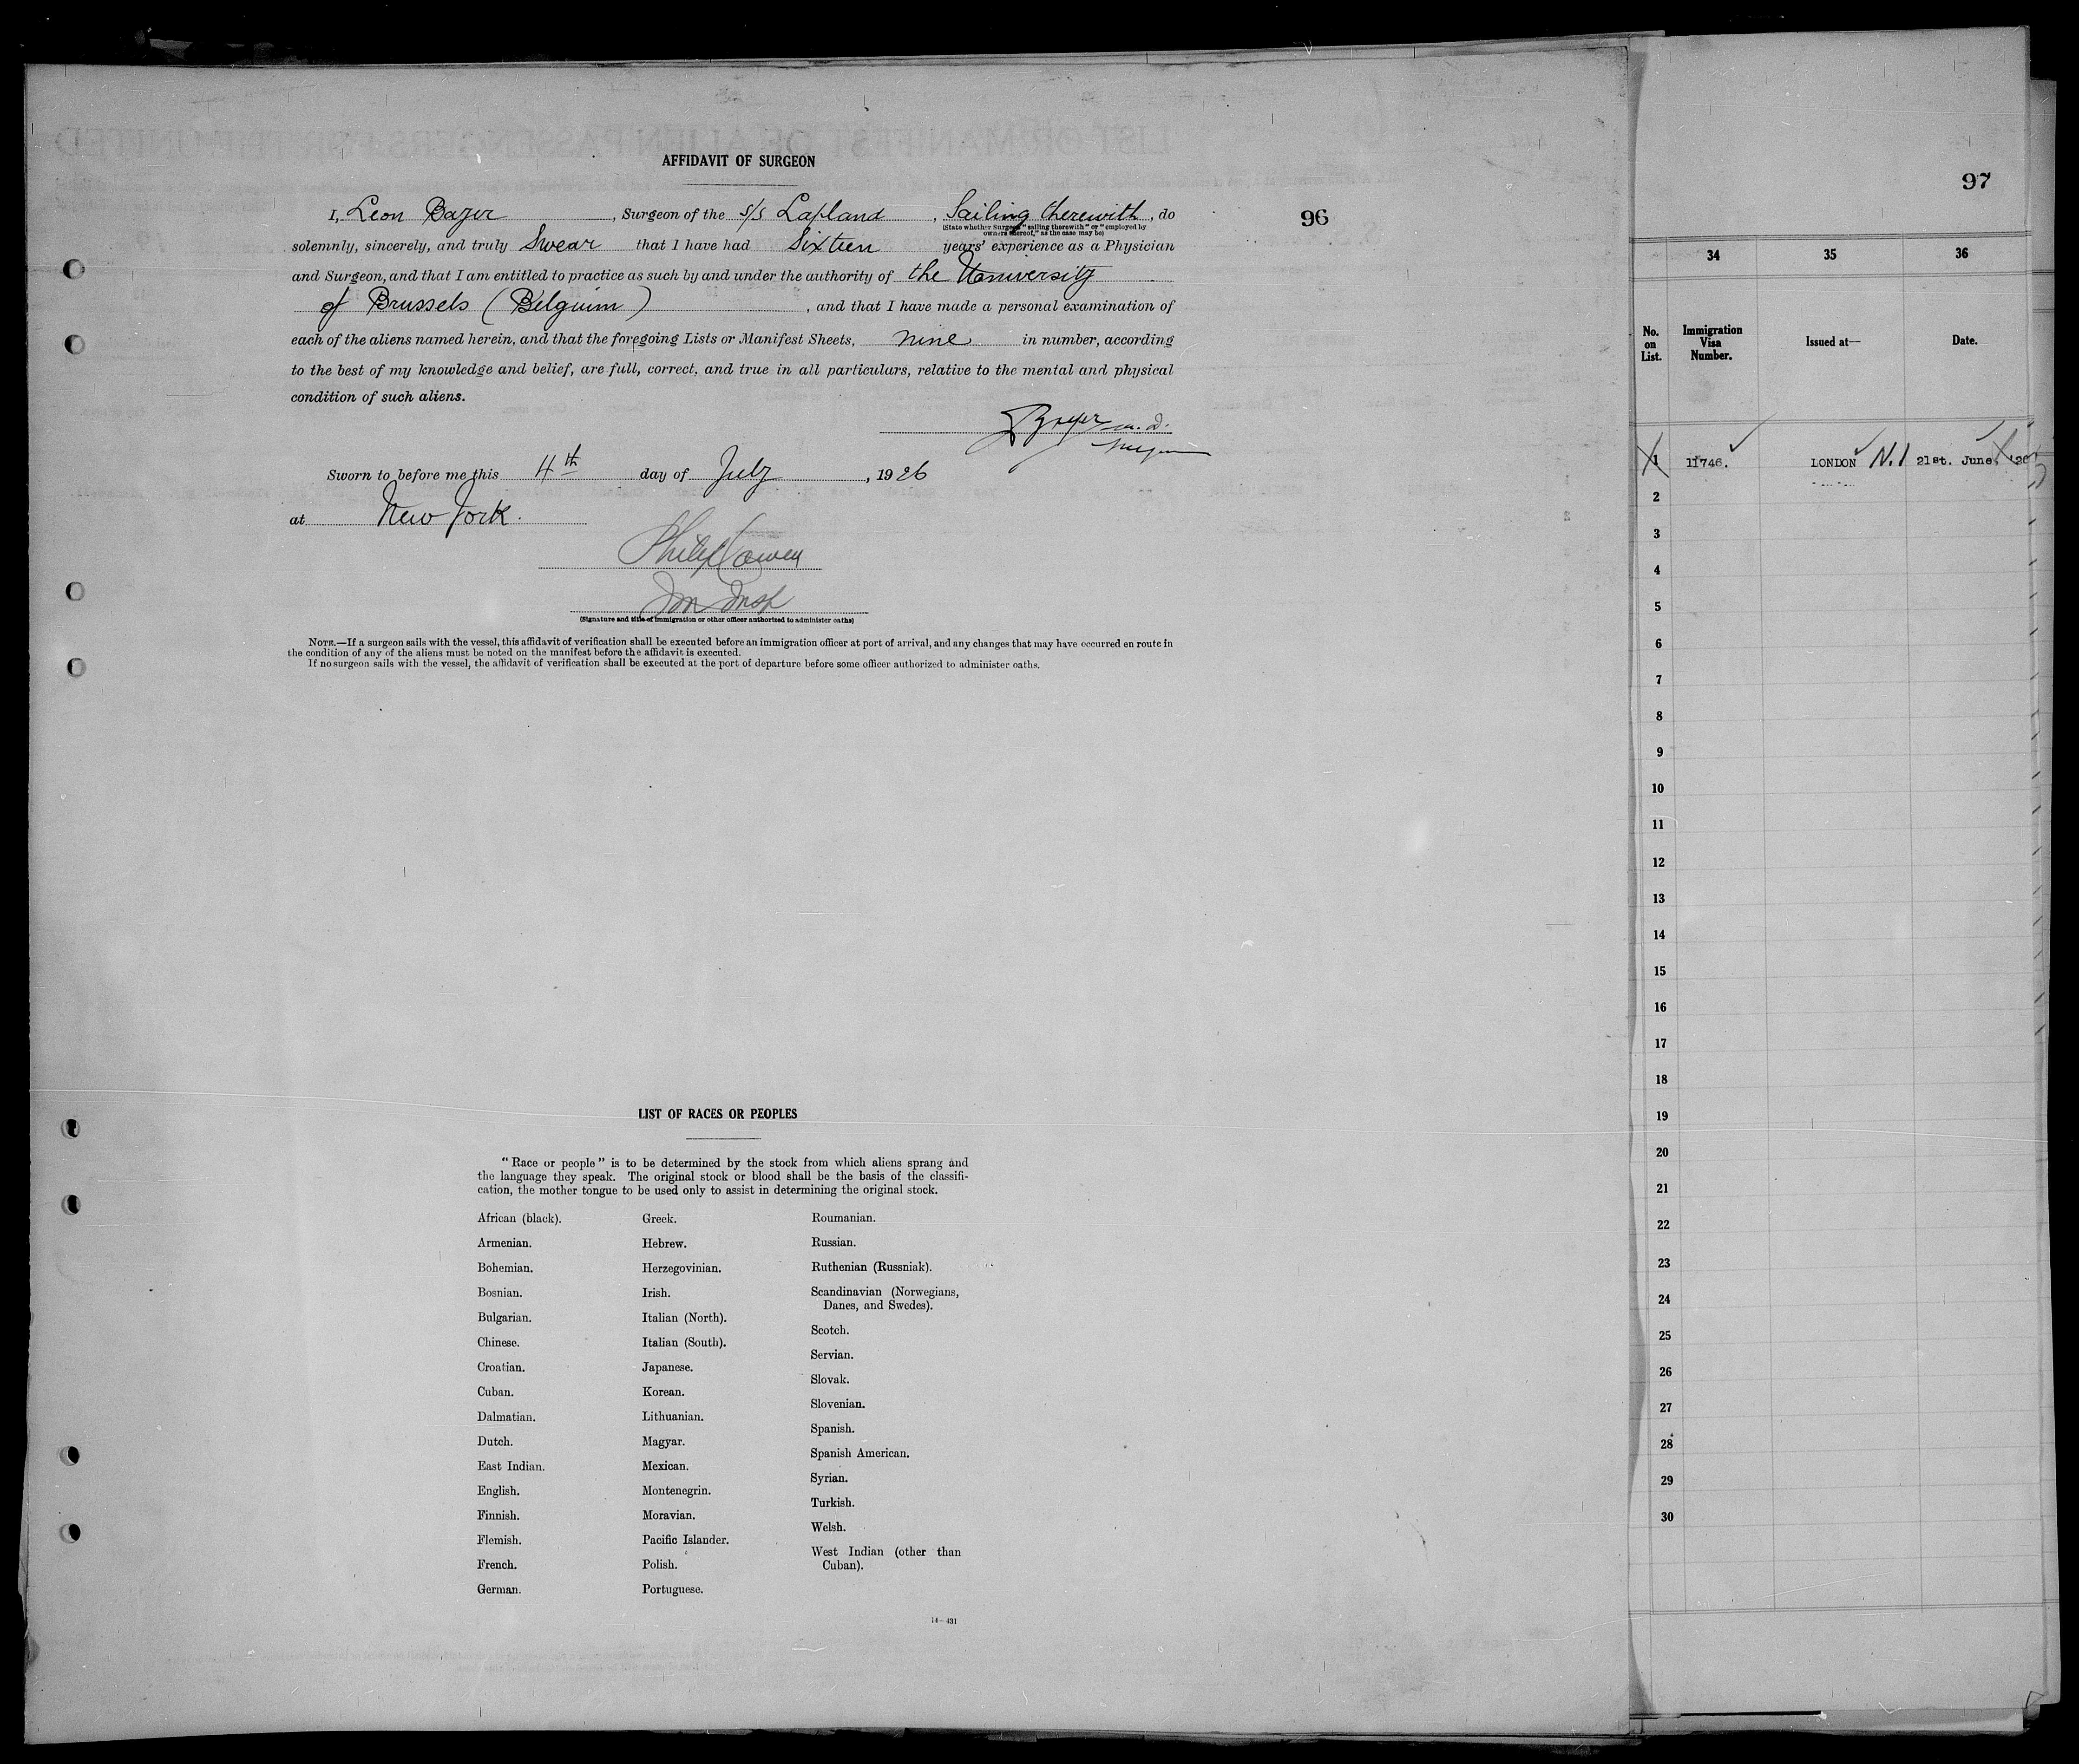 LIST OR MANIFEST OF ALIEN PASSENGERS FOR THE UNITED
AFFIDAVIT OF SURGEON
I, Leon Bazer, Surgeon of the S/S Lapland, Sailing therewith, do
(State whether Surgeon "sailing therewith" or "employed by
owners thereof," as the case may be)
solemnly, sincerely, and truly Swear that I have had Sixteen years' experience as a Physician
and Surgeon, and that I am entitled to practice as such by and under the authority of the University
of Brussels (Belgium), and that I have made a personal examination of
each of the aliens named herein, and that the foregoing Lists or Manifest Sheets, nine in number, according
to the best of my knowledge and belief, are full, correct, and true in all particulars, relative to the mental and physical
condition of such aliens.
m.d.
Sworn to before me this 4th day of July, 1926
at New York.
Philip Cowen
Imm Insp
(Signature and title of immigration or other officer authorized to administer oaths)
NOTE.—If a surgeon sails with the vessel, this affidavit of verification shall be executed before an immigration officer at port of arrival, and any changes that may have occurred en route in
the condition of any of the aliens must be noted on the manifest before the affidavit is executed.
If no surgeon sails with the vessel, the affidavit of verification shall be executed at the port of departure before some officer authorized to administer oaths.
96
LIST OF RACES OR PEOPLES
"Race or people" is to be determined by the stock from which aliens sprang and
the language they speak. The original stock or blood shall be the basis of the classifi-
cation, the mother tongue to be used only to assist in determining the original stock.
African (black).
Armenian.
Bohemian.
Bosnian.
Bulgarian.
Chinese.
Croatian.
Cuban.
Dalmatian.
Dutch.
East Indian.
English.
Finnish.
Flemish.
French.
German.
Greek.
Hebrew.
Herzegovinian.
Irish.
Italian (North).
Italian (South).
Japanese.
Korean.
Lithuanian.
Magyar.
Mexican.
Montenegrin.
Moravian.
Pacific Islander.
Polish.
Portuguese.
Roumanian.
Russian.
Ruthenian (Russniak).
Scandinavian (Norwegians,
Danes, and Swedes).
Scotch.
Servian.
Slovak.
Slovenian.
Spanish.
Spanish American.
Syrian.
Turkish.
Welsh.
West Indian (other than
Cuban).
14—431
97
34 35 36
No.
on
List.
Immigration
Visa
Number.
Issued at—
Date.
1 11746. LONDON N.I 21st. June, 26
2
3
4
5
6
7
8
9
10
11
12
13
14
15
16
17
18
19
20
21
22
23
24
25
26
27
28
29
30